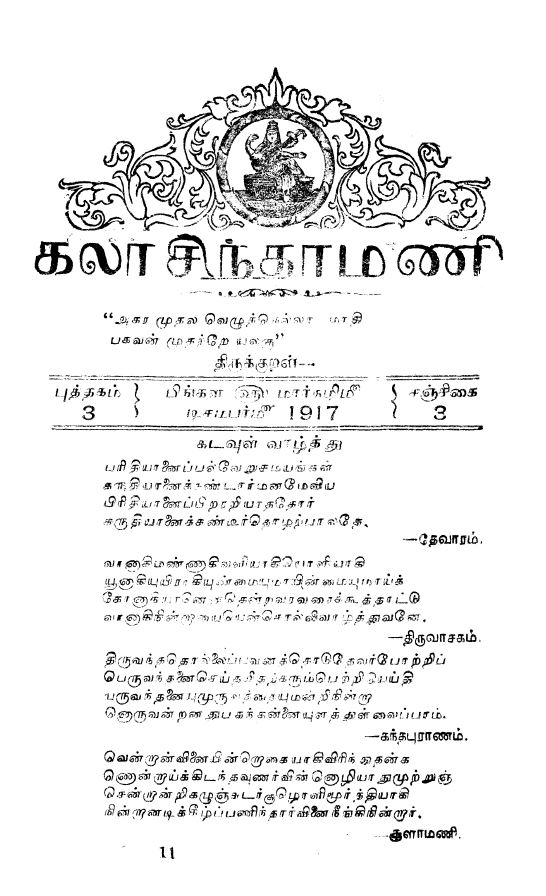 கலாசிந்தாமணி
“அகர முதல வெழுத்தெல்லா மாதி
பகவன் முதற்றே யுலகு”
திருக்குறள்—
புத்தகம் 3
பிங்கள ௵ மார்கழி௴
டிசம்பர்௴ 1917
சஞ்சிகை 3
கடவுள் வாழ்த்து
பரிதியானைப்பல்வேறுசமயங்கள்
கருதியானைக்கண்டார்மனமேவிய
பிரிதியானைப்பிறரறியாததோர்
கருதியானைக்கண்டீர்தொழற்பாலதே.
—தேவாரம்.
வானாகிமண்ணாகிவளியாகியொளியாகி
யூனாகியுயிராகியுண்மையுமாயின்மையுமாய்க்
கோனாகியானெனதென்றவரவரைக்கூத்தாட்டு
வானாகிநின்றாயையென்சொல்லிவாழ்த்துவனே.
—திருவாசகம்.
திருவந்ததொல்லைப்புவனத்தொடுதேவர்போற்றிப்
பெருவந்தனைசெய்தறிதற்கரும்பெற்றியெய்தி
யருவந்தனையுமுருவத்தையுமன்றிநின்றா
ணொருவன்றனதுபதந்தன்னையுளத்துள்வைப்பாம்.
—கந்தபுராணம்.
வென்றான்வினையின்றொகையாகிவிரிந்துதன்க
ணொன்றாய்க்கிடந்தவுணர்வின்னொழியாதுமுற்றுஞ்
சென்றான்றிகழுஞ்சுடர்சூழொளிமூர்த்தியாகி
நின்றானடிக்கீழ்ப்பணிந்தார்வினைநீங்கிநின்றார்.
—சூளாமணி.
11